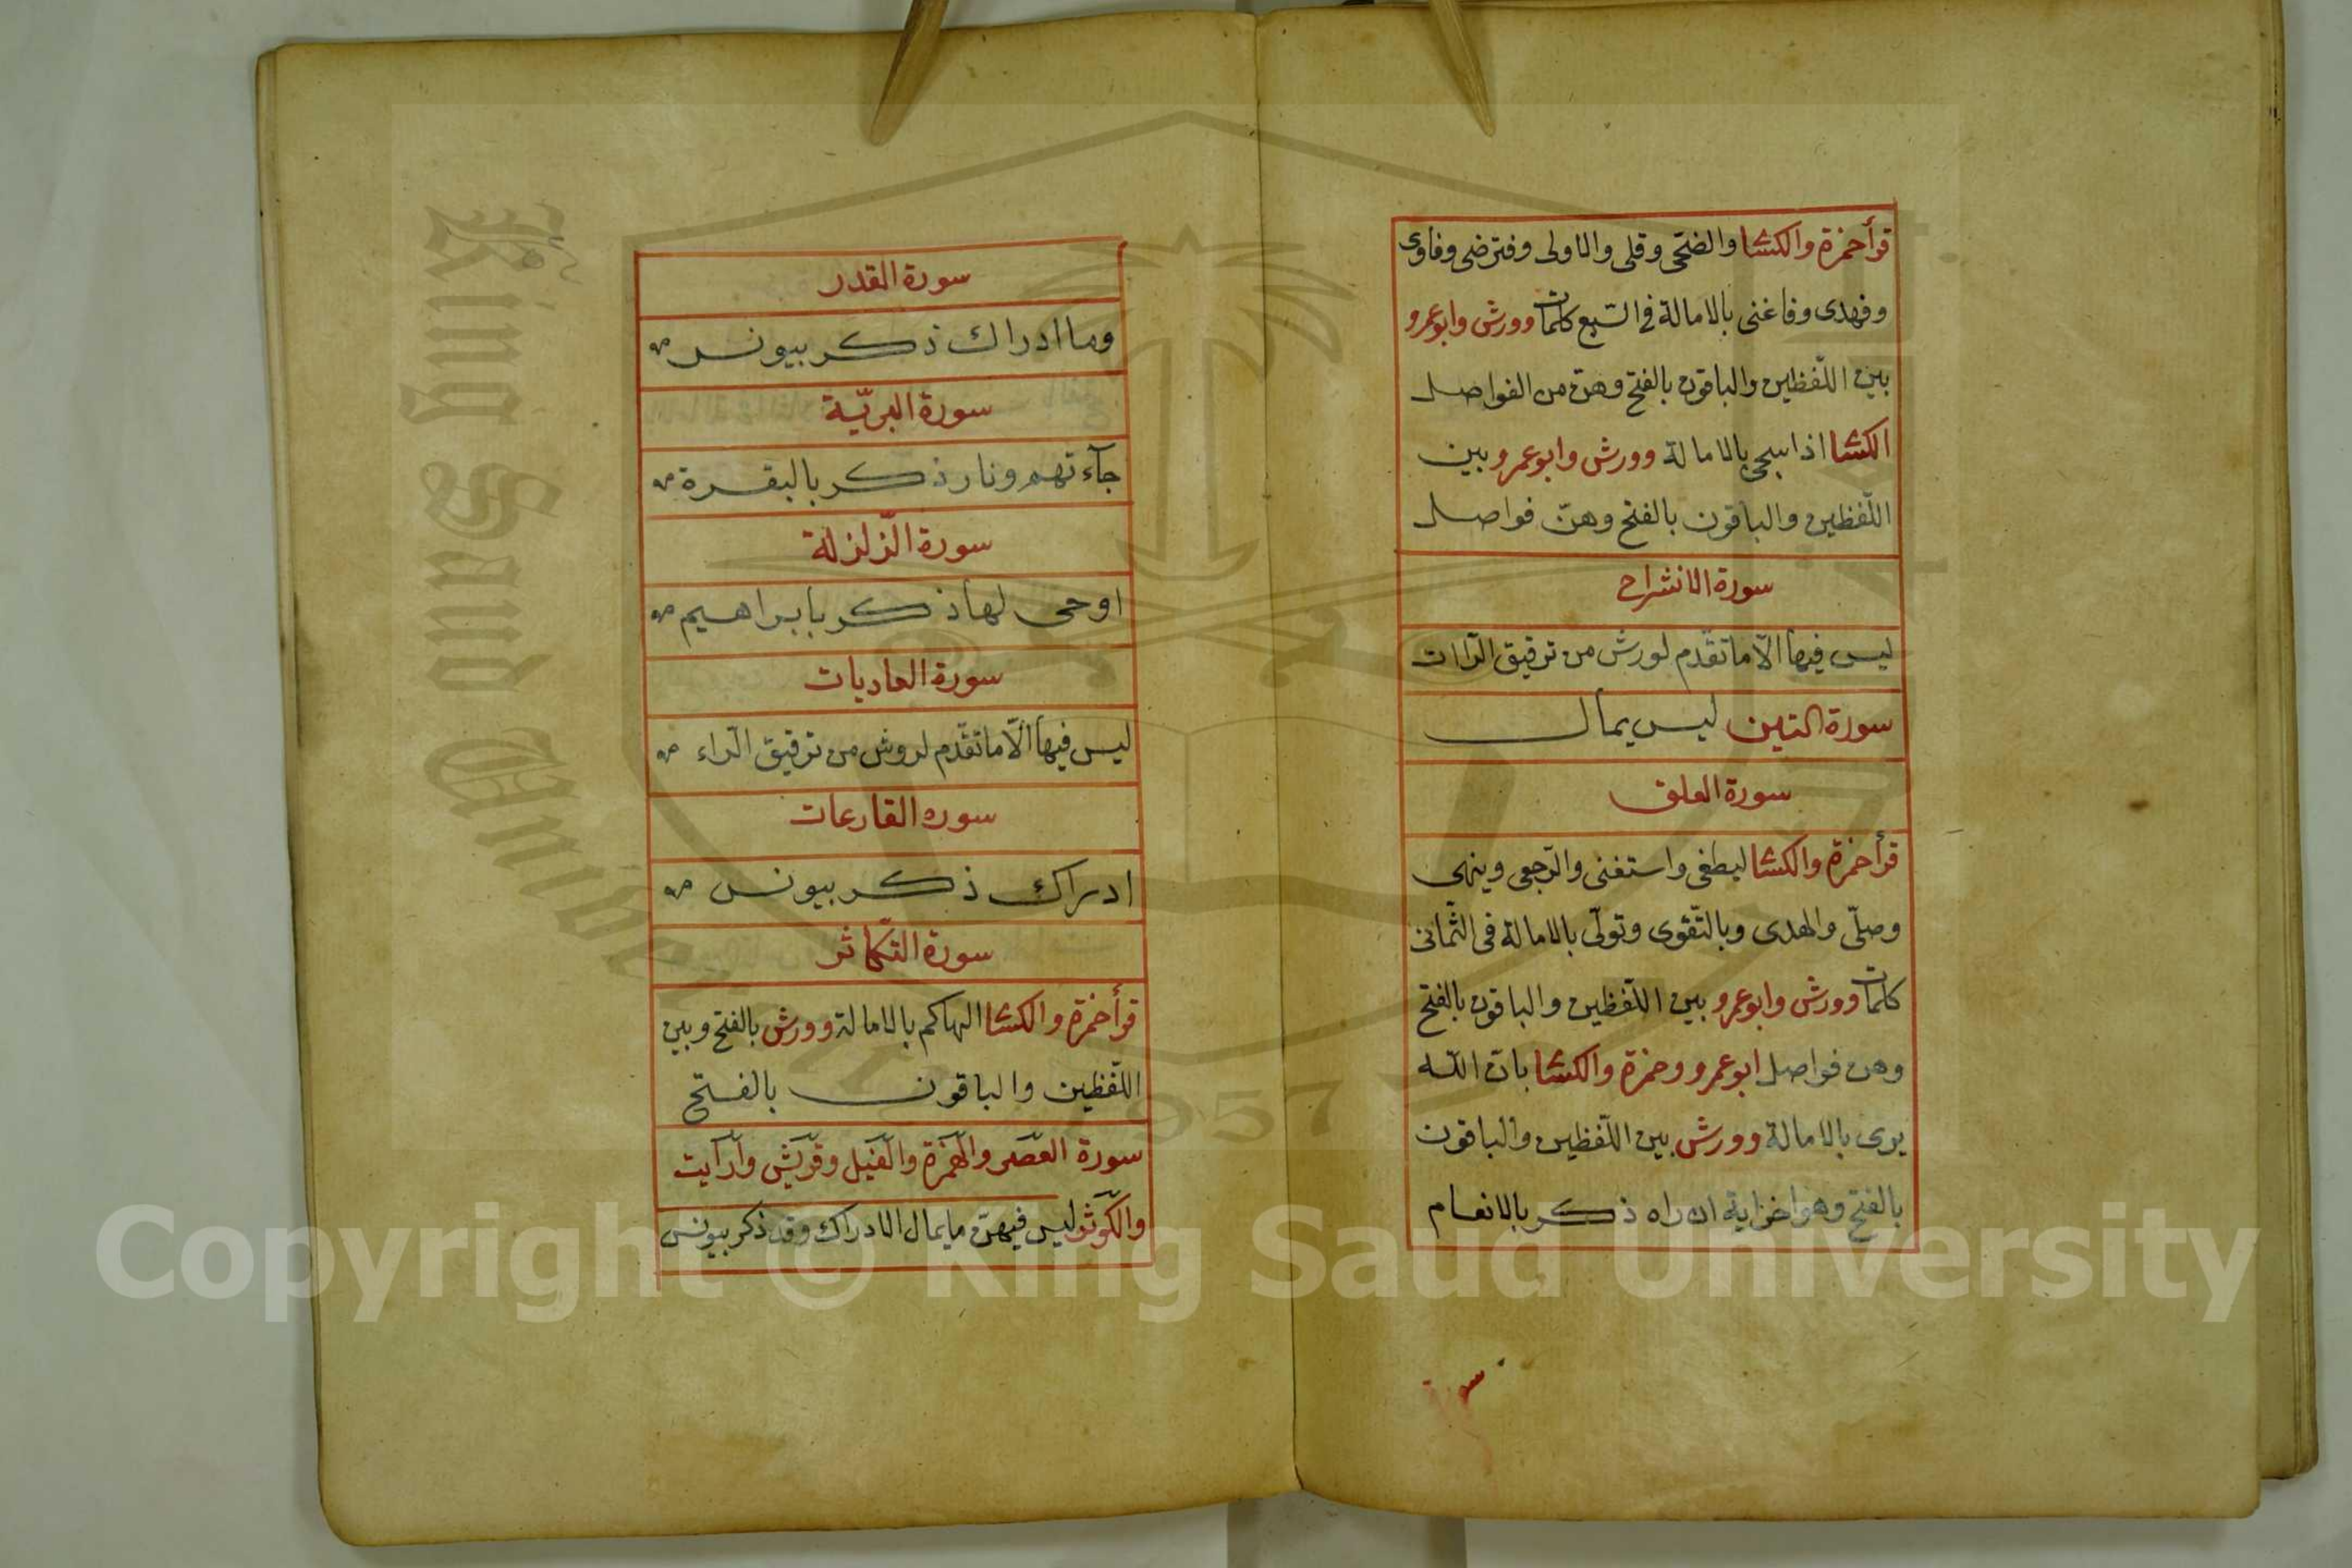 قرأ حمزة والكسا والضحى وقلى والاولى وفترضى وفاوى
وفهدى وفاغنى بالامالة فى السّبع كلمات وورش وابوعمرو
بين اللّفظين والباقون بالفتح وهن من الفواصل
الكسا اذا سجى بالامالة وورش وابوعمرو وبين
اللّفظين والباقون بالفتح وهنّ فواصل
سورة الانشراح
ليس فيها الّا ماتقدّم لورش من ترقيق الرّاات
سورة التين ليس يمال
سورة العلق
قرأ حمزة والكسا ليطغى واستغنى والرّجعى وينهى
وصلّى والهدى وبالتّقوى وتولّى بالامالة فى الثّمانى
كلمات وورش وابوعمرو بين اللّفظين والباقون بالفتح
وهن فواصل ابوعمرو وحمزة والكسا بان اللّه
يرى بالامالة وورش بين اللّفظين والباقون
بالفتح وهو اخر اية ان راه ذكر بالانعام
سورة
سورة القدر
وما ادراك ذكر بيونس
سورة البريّة
جآءتهم ونار ذكر بالبقرة
سورة الزّلزلة
اوحى لها ذكر بابراهيم
سورة العاديات
ليس فيها الّا ماتقدّم لروش من ترقيق الرّاء
سوره القارعات
ادراك ذكر بيونس
سورة التّكاثر
قرأ حمزة والكسا الهاكم بالامالة وورش بالفتح وبين
اللّفظين والباقون بالفتح
سورة العصر والهمزة والفيل وقريش وارايت
والكوثر ليس فيهنّ مايمال الا ادراك وقد ذكر بيونس
King Saud University
1957
Copyright © King Saud University